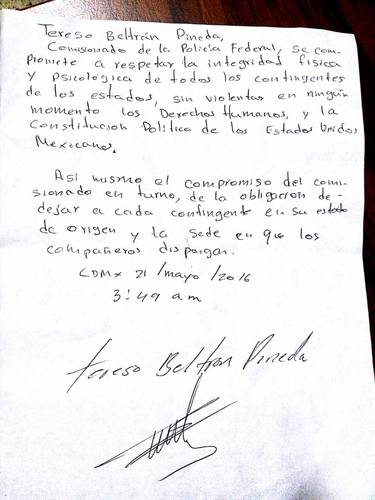 Tereso Beltrán Pineda,
Comisionado de la Policía Federal, se com-
promete a respetar la integridad física
y psicológica de todos los contingentes
de los estados, sin violentar en ningún
momento los Derechos Humanos, y la
Constitucion Política de los Estados Unidos
Mexicanos.
Así mismo el compromiso del comi-
sionado en turno, de la obligacion de
dejar a cada contingente en su estado
de origen y la sede en que los
compañeros dispongan.
CDMX 21/mayo/2016
3:49 am
tereso Beltran Pineda